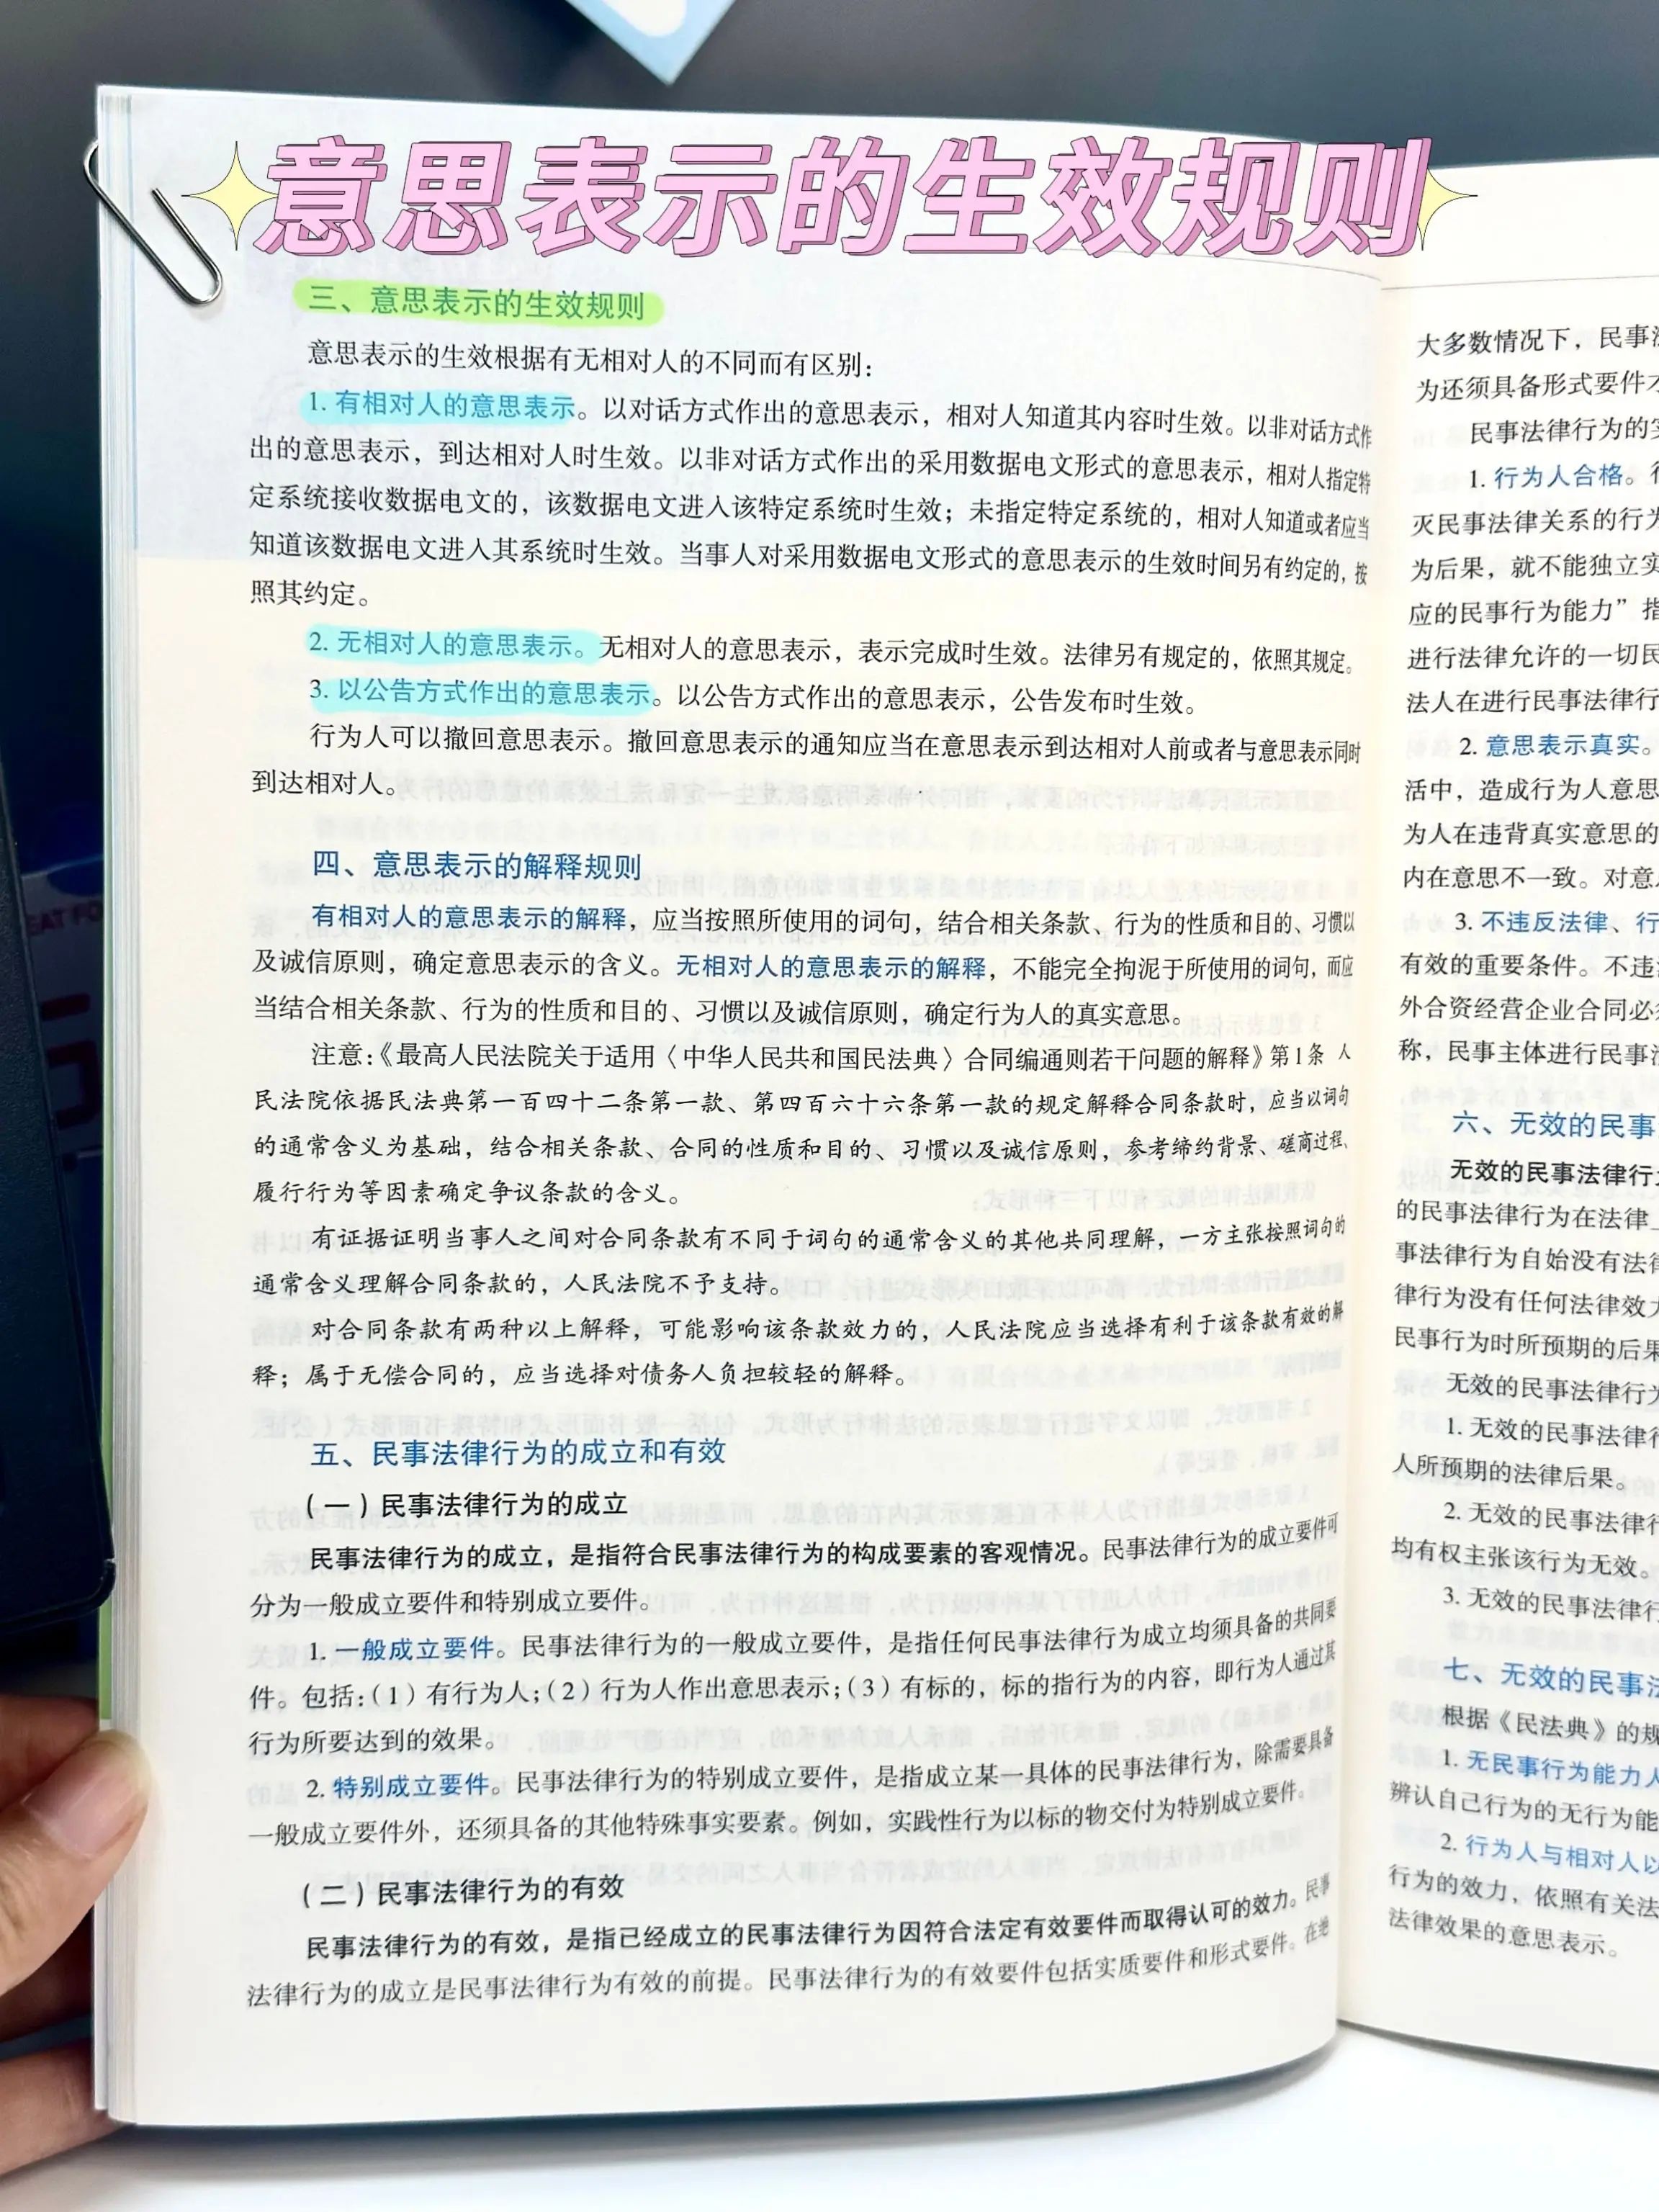 意思表示的生效规则
三、意思表示的生效规则
意思表示的生效根据有无相对人的不同而有区别：
1. 有相对人的意思表示。以对话方式作出的意思表示，相对人知道其内容时生效。以非对话方式作
出的意思表示，到达相对人时生效。以非对话方式作出的采用数据电文形式的意思表示，相对人指定特
定系统接收数据电文的，该数据电文进入该特定系统时生效；未指定特定系统的，相对人知道或者应当
知道该数据电文进入其系统时生效。当事人对采用数据电文形式的意思表示的生效时间另有约定的，按
照其约定。
2. 无相对人的意思表示。无相对人的意思表示，表示完成时生效。法律另有规定的，依照其规定。
3. 以公告方式作出的意思表示。以公告方式作出的意思表示，公告发布时生效。
行为人可以撤回意思表示。撤回意思表示的通知应当在意思表示到达相对人前或者与意思表示同时
到达相对人。
四、意思表示的解释规则
有相对人的意思表示的解释，应当按照所使用的词句，结合相关条款、行为的性质和目的、习惯以
及诚信原则，确定意思表示的含义。无相对人的意思表示的解释，不能完全拘泥于所使用的词句，而应
当结合相关条款、行为的性质和目的、习惯以及诚信原则，确定行为人的真实意思。
注意：《最高人民法院关于适用〈中华人民共和国民法典〉合同编通则若干问题的解释》第1条 人
民法院依据民法典第一百四十二条第一款、第四百六十六条第一款的规定解释合同条款时，应当以词句
的通常含义为基础，结合相关条款、合同的性质和目的、习惯以及诚信原则，参考缔约背景、磋商过程、
履行行为等因素确定争议条款的含义。
有证据证明当事人之间对合同条款有不同于词句的通常含义的其他共同理解，一方主张按照词句的
通常含义理解合同条款的，人民法院不予支持。
对合同条款有两种以上解释，可能影响该条款效力的，人民法院应当选择有利于该条款有效的解
释；属于无偿合同的，应当选择对债务人负担较轻的解释。
五、民事法律行为的成立和有效
（一）民事法律行为的成立
民事法律行为的成立，是指符合民事法律行为的构成要素的客观情况。民事法律行为的成立要件可
分为一般成立要件和特别成立要件。
1. 一般成立要件。民事法律行为的一般成立要件，是指任何民事法律行为成立均须具备的共同要
件。包括：（1）有行为人；（2）行为人作出意思表示；（3）有标的，标的指行为的内容，即行为人通过其
行为所要达到的效果。
2. 特别成立要件。民事法律行为的特别成立要件，是指成立某一具体的民事法律行为，除需要具备
一般成立要件外，还须具备的其他特殊事实要素。例如，实践性行为以标的物交付为特别成立要件。
（二）民事法律行为的有效
民事法律行为的有效，是指已经成立的民事法律行为因符合法定有效要件而取得认可的效力。民事
法律行为的成立是民事法律行为有效的前提。民事法律行为的有效要件包括实质要件和形式要件。在绝
大多数情况下，民事法
为还须具备形式要件才
民事法律行为的实
1. 行为人合格。行
灭民事法律关系的行为
为后果，就不能独立实
应的民事行为能力”指
进行法律允许的一切民
法人在进行民事法律行
2. 意思表示真实。
活中，造成行为人意思
为人在违背真实意思的
内在意思不一致。对意
3. 不违反法律、行
有效的重要条件。不违
外合资经营企业合同必须
称，民事主体进行民事
六、无效的民事
无效的民事法律行
的民事法律行为在法律上
事法律行为自始没有法律
律行为没有任何法律效力
民事行为时所预期的后果
无效的民事法律行为
1. 无效的民事法律行
人所预期的法律后果。
2. 无效的民事法律行
均有权主张该行为无效。
3. 无效的民事法律行
七、无效的民事法
根据《民法典》的规
1. 无民事行为能力人
辨认自己行为的无行为能
2. 行为人与相对人以
行为的效力，依照有关法
法律效果的意思表示。